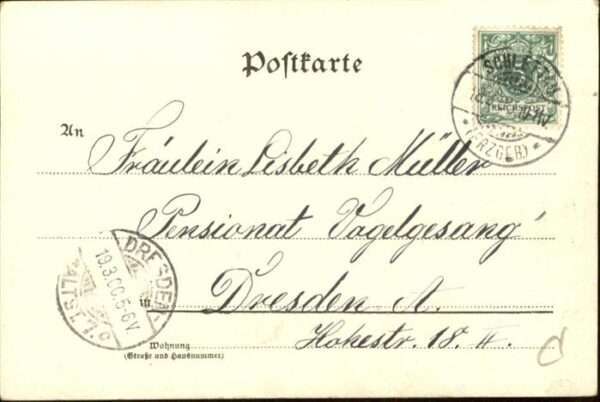 Postkarte
SCHLETTAU
REICHSPOST
(ERZGEB.)
An
Fräulein Lisbeth Müller
Pensionat Vogelgesang
DRESDEN
19.3.00.5-6V.
ALTST.
in Dresden A.
Hohestr. 18. II.
Wohnung
(Straße und Hausnummer)